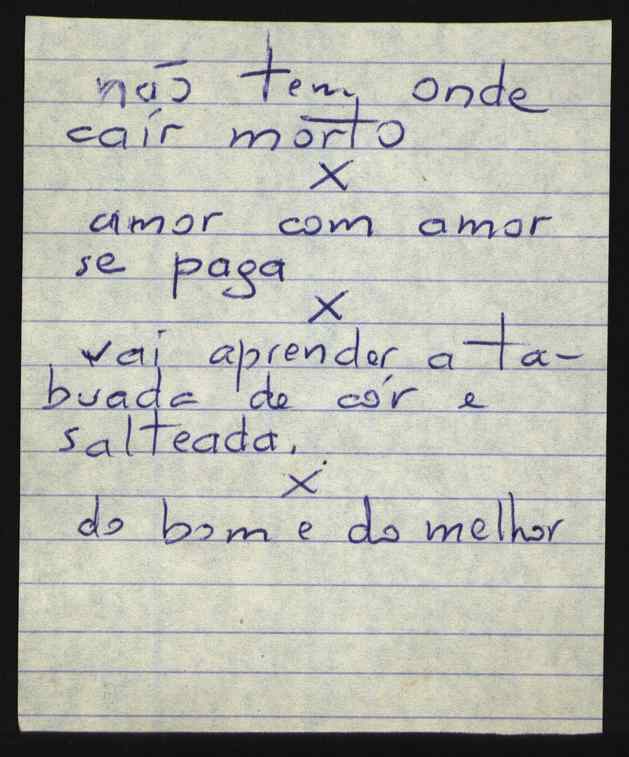 não tem onde
cair morto
X
amor com amor
se paga
X
vai aprender a ta-
buada de cór e
salteada.
X
do bom e do melhor